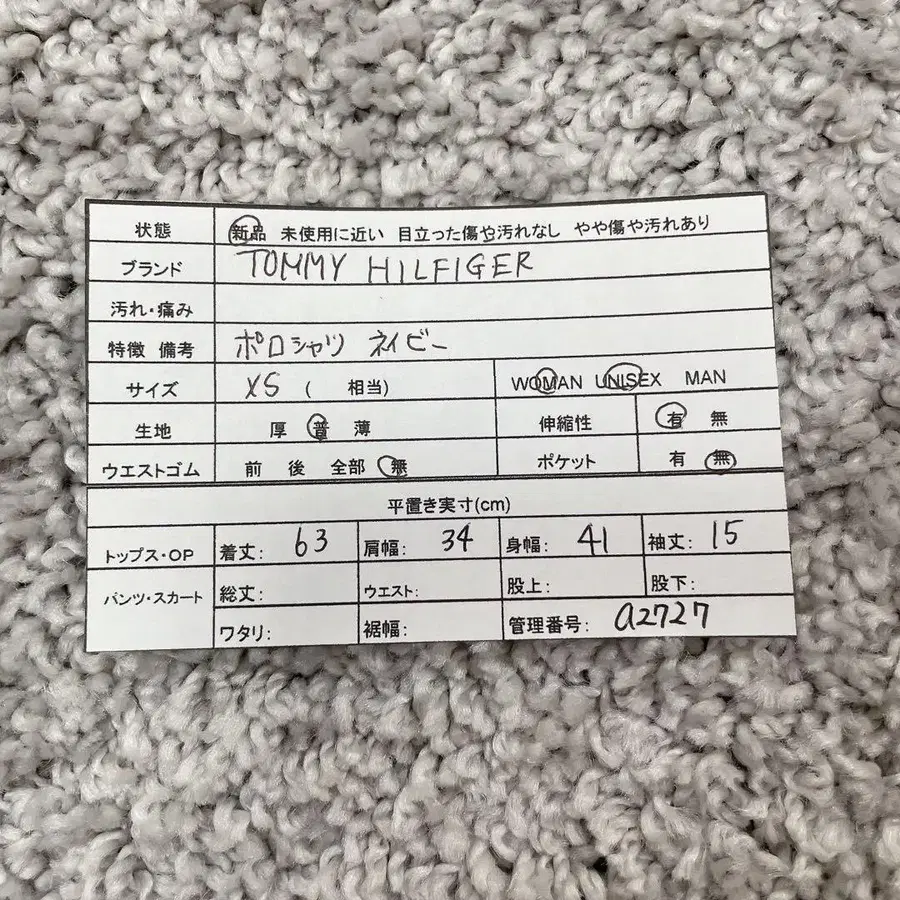 状態 新品 未使用に近い 目立った傷や汚れなし やや傷や汚れあり
ブランド TOMMY HILFIGER
汚れ・痛み
特徴 備考 ポロシャツ ネイビー
サイズ XS ( 相当) WOMAN UNISEX MAN
生地 厚 普 薄 伸縮性 有 無
ウエストゴム 前 後 全部 無 ポケット 有 無
平置き実寸(cm)
トップス・OP 着丈: 63 肩幅: 34 身幅: 41 袖丈: 15
パンツ・スカート 総丈: ウエスト: 股上: 股下:
ワタリ: 裾幅: 管理番号: a2727